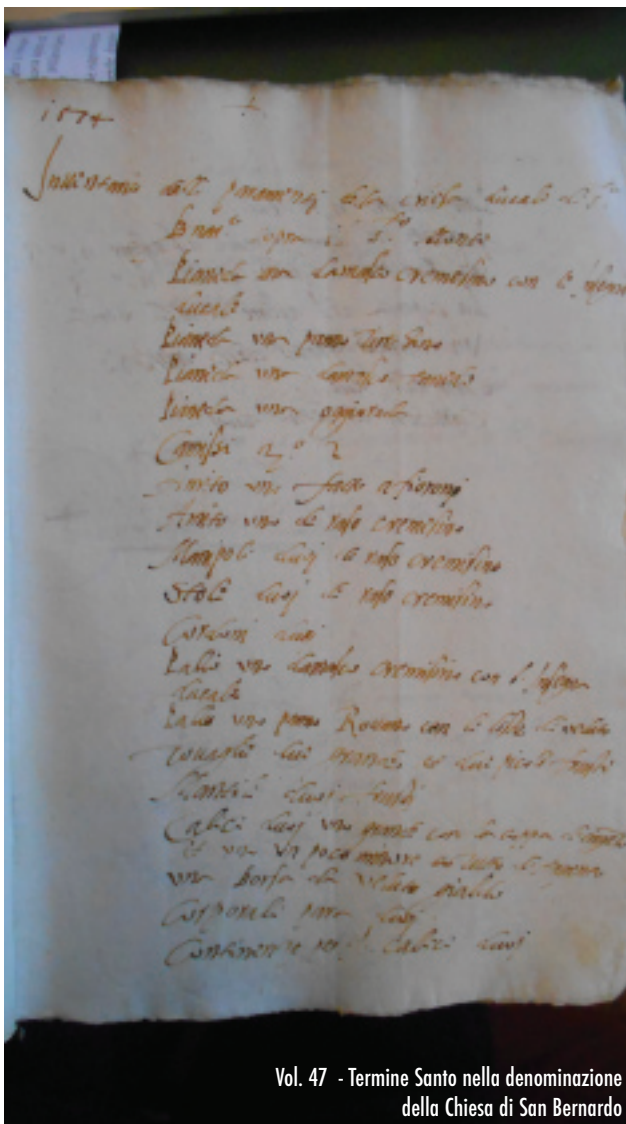 1574
Inventario delli paramenti della chiesa ducale di
Bnar.do sopra il Monte
Pianeta una damasco cremesino con l'insegna
ducale
Pianeta una panno turchino
Pianeta una damasco
Pianeta una
Camisi n.o 2
Amito uno fatto a fioroni
Amito uno de raso cremesino
Manipoli duoi de raso cremesino
Stole duoi de raso cremesino
Cordoni duoi
Palio uno damasco cremesino con l'insegna
ducale
Palio uno panno Rovano con le liste di veluto
Tovaglie due grande et due picole
Mantili duoi
Calici duoi uno grande con la coppa d'argento
et uno un poco minore
una Borsa de veluto gialdo
Corporali para duoi
per calici duoi
Vol. 47 - Termine Santo nella denominazione
della Chiesa di San Bernardo